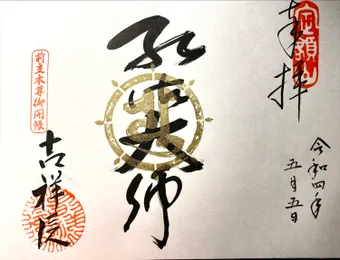 奉拝
定額山
令和四年
五月五日
弘法大師
前立本尊御開帳
吉祥院